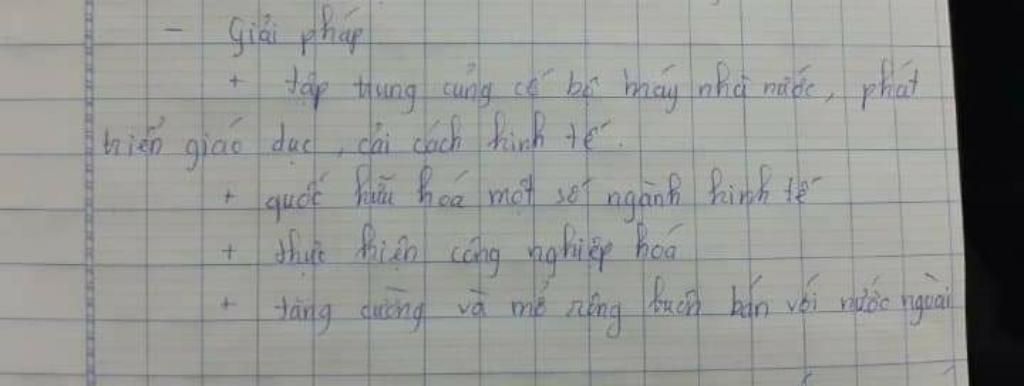 - Giải pháp
+ tập trung củng cố bộ máy nhà nước, phát
triển giáo dục, cải cách kinh tế.
+ quốc hữu hoá một số ngành kinh tế
+ thực hiện công nghiệp hoá
+ tăng cường và mở rộng buôn bán với nước ngoài